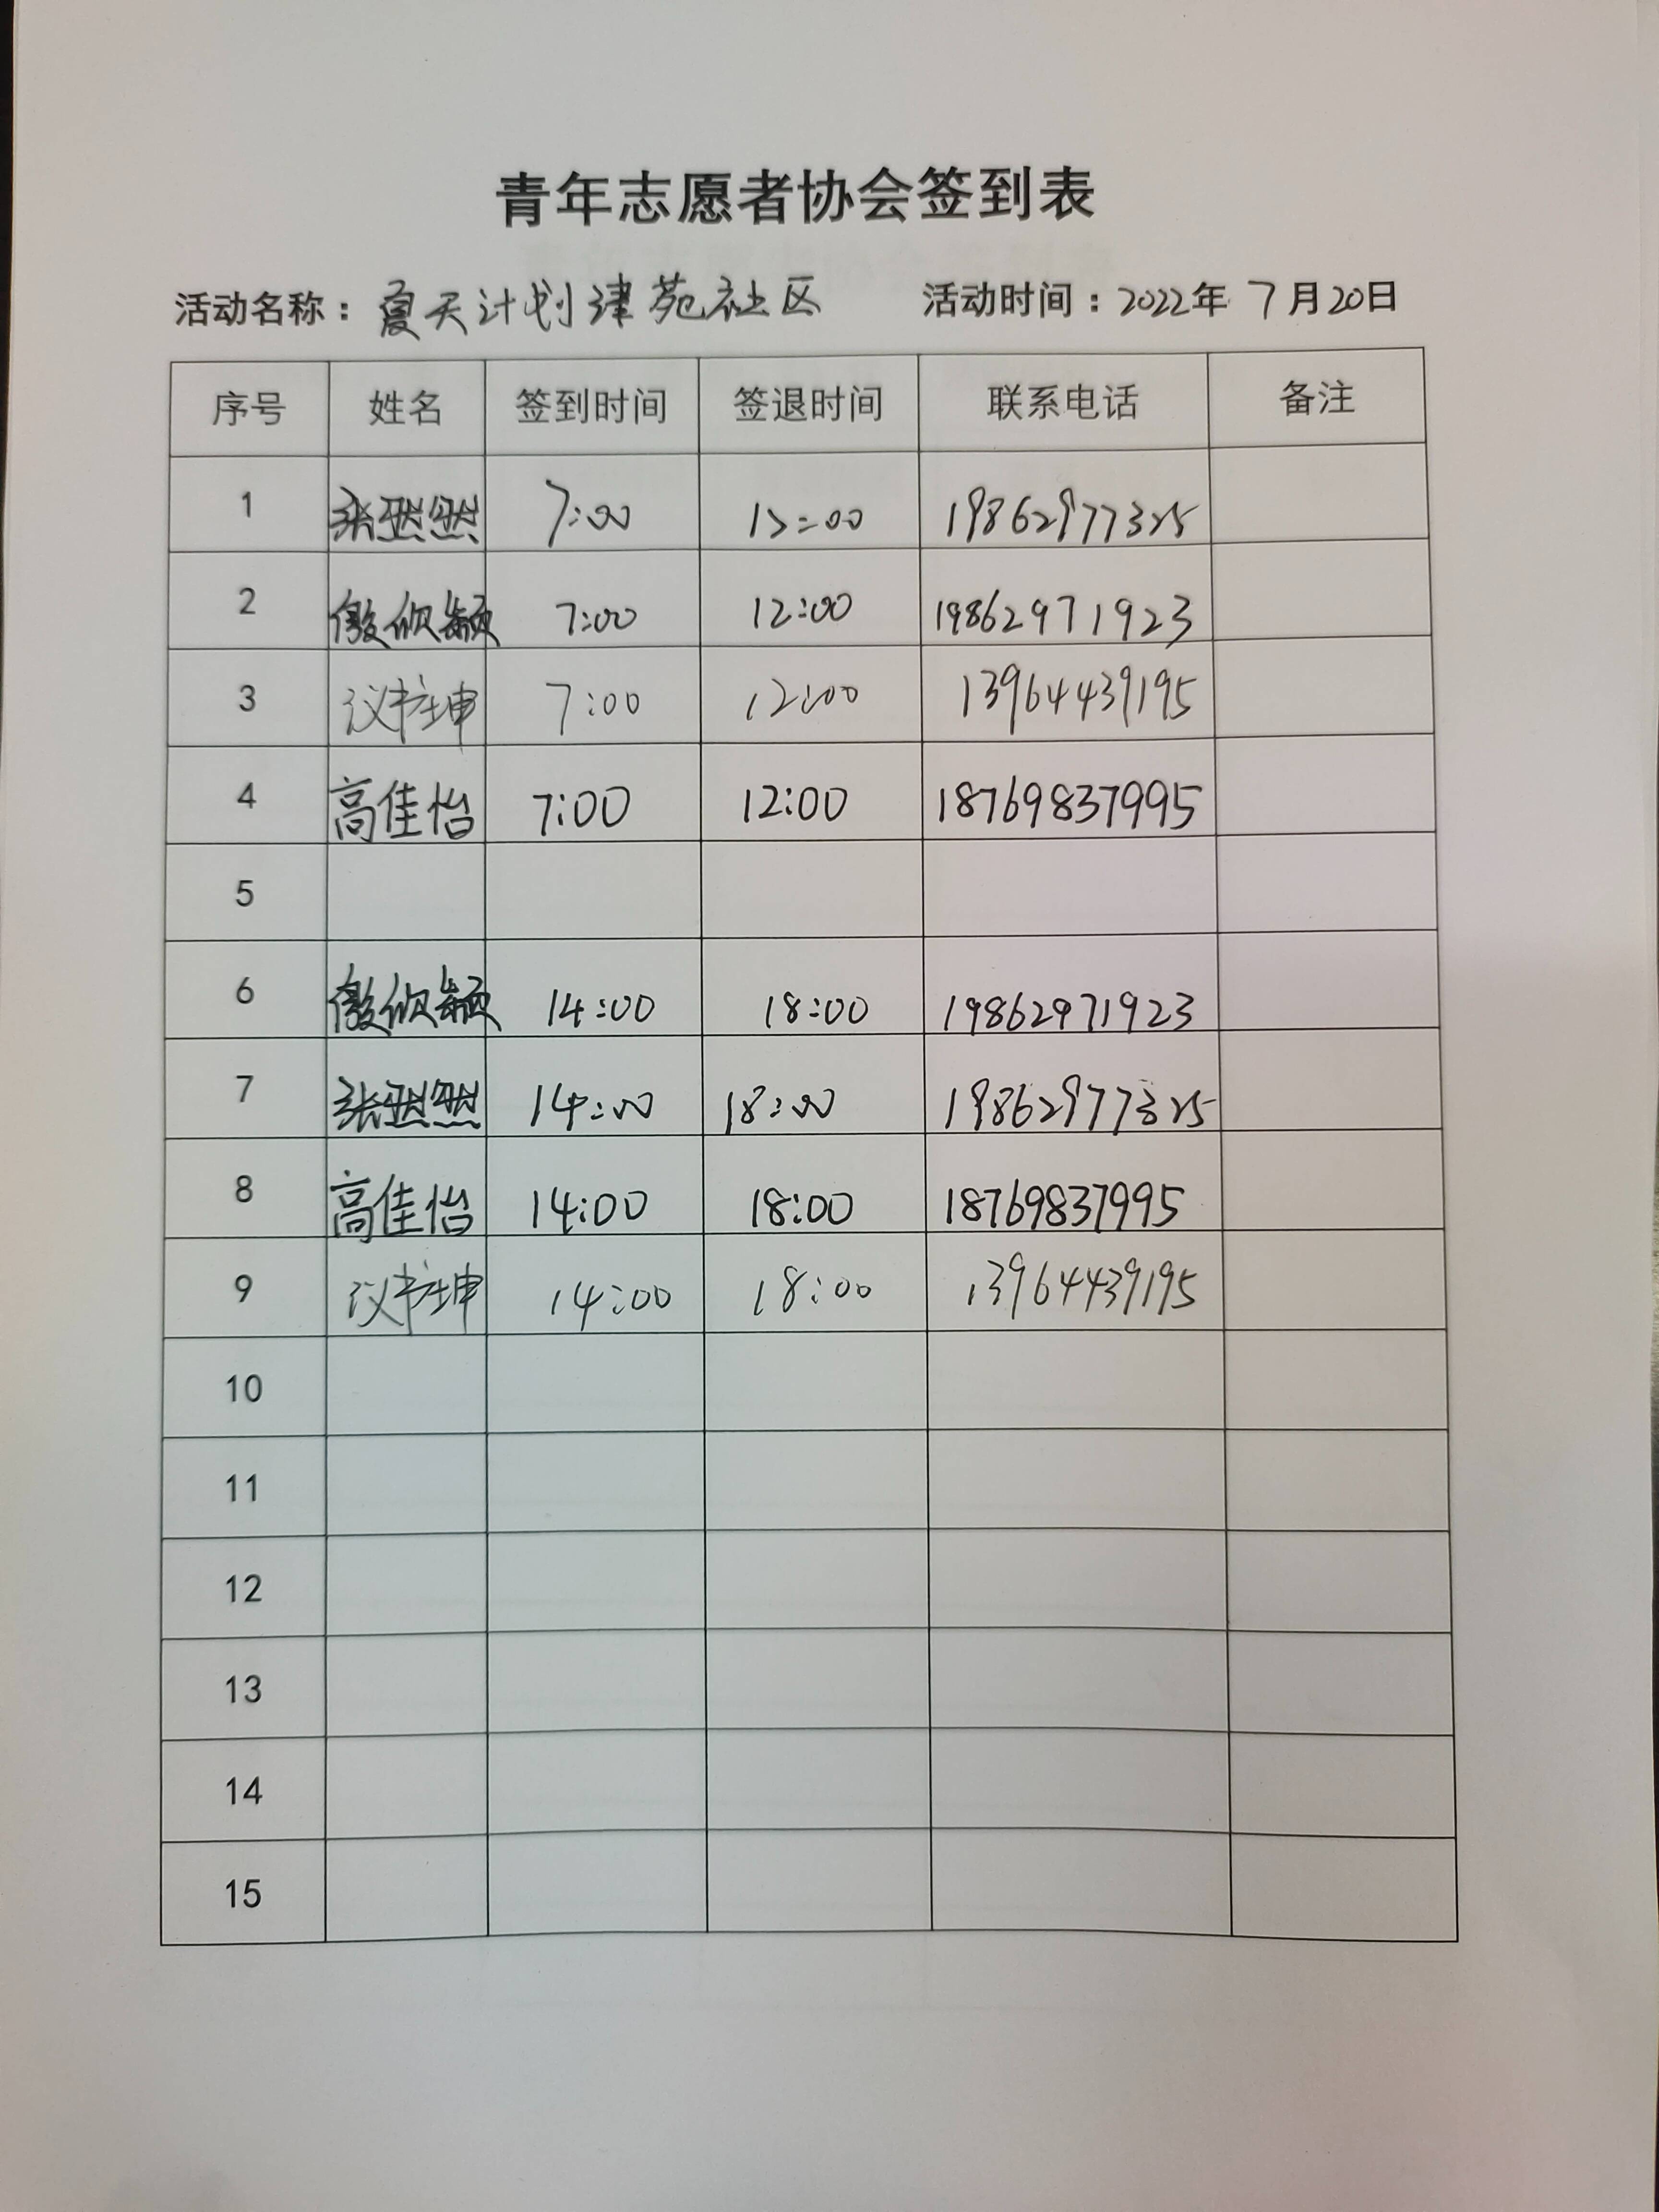 青年志愿者协会签到表
活动名称：夏天计划津苑社区 活动时间：2022年 7月20日
序号 姓名 签到时间 签退时间 联系电话 备注
1 张 然 7:00 12:00 19862977325
2 欣颖 7:00 12:00 19862971923
3 坤 7:00 12:00 13964439195
4 高佳怡 7:00 12:00 18769837995
5
6 欣颖 14:00 18:00 19862971923
7 张 然 14:00 18:00 19862977325
8 高佳怡 14:00 18:00 18769837995
9 坤 14:00 18:00 13964439195
10
11
12
13
14
15